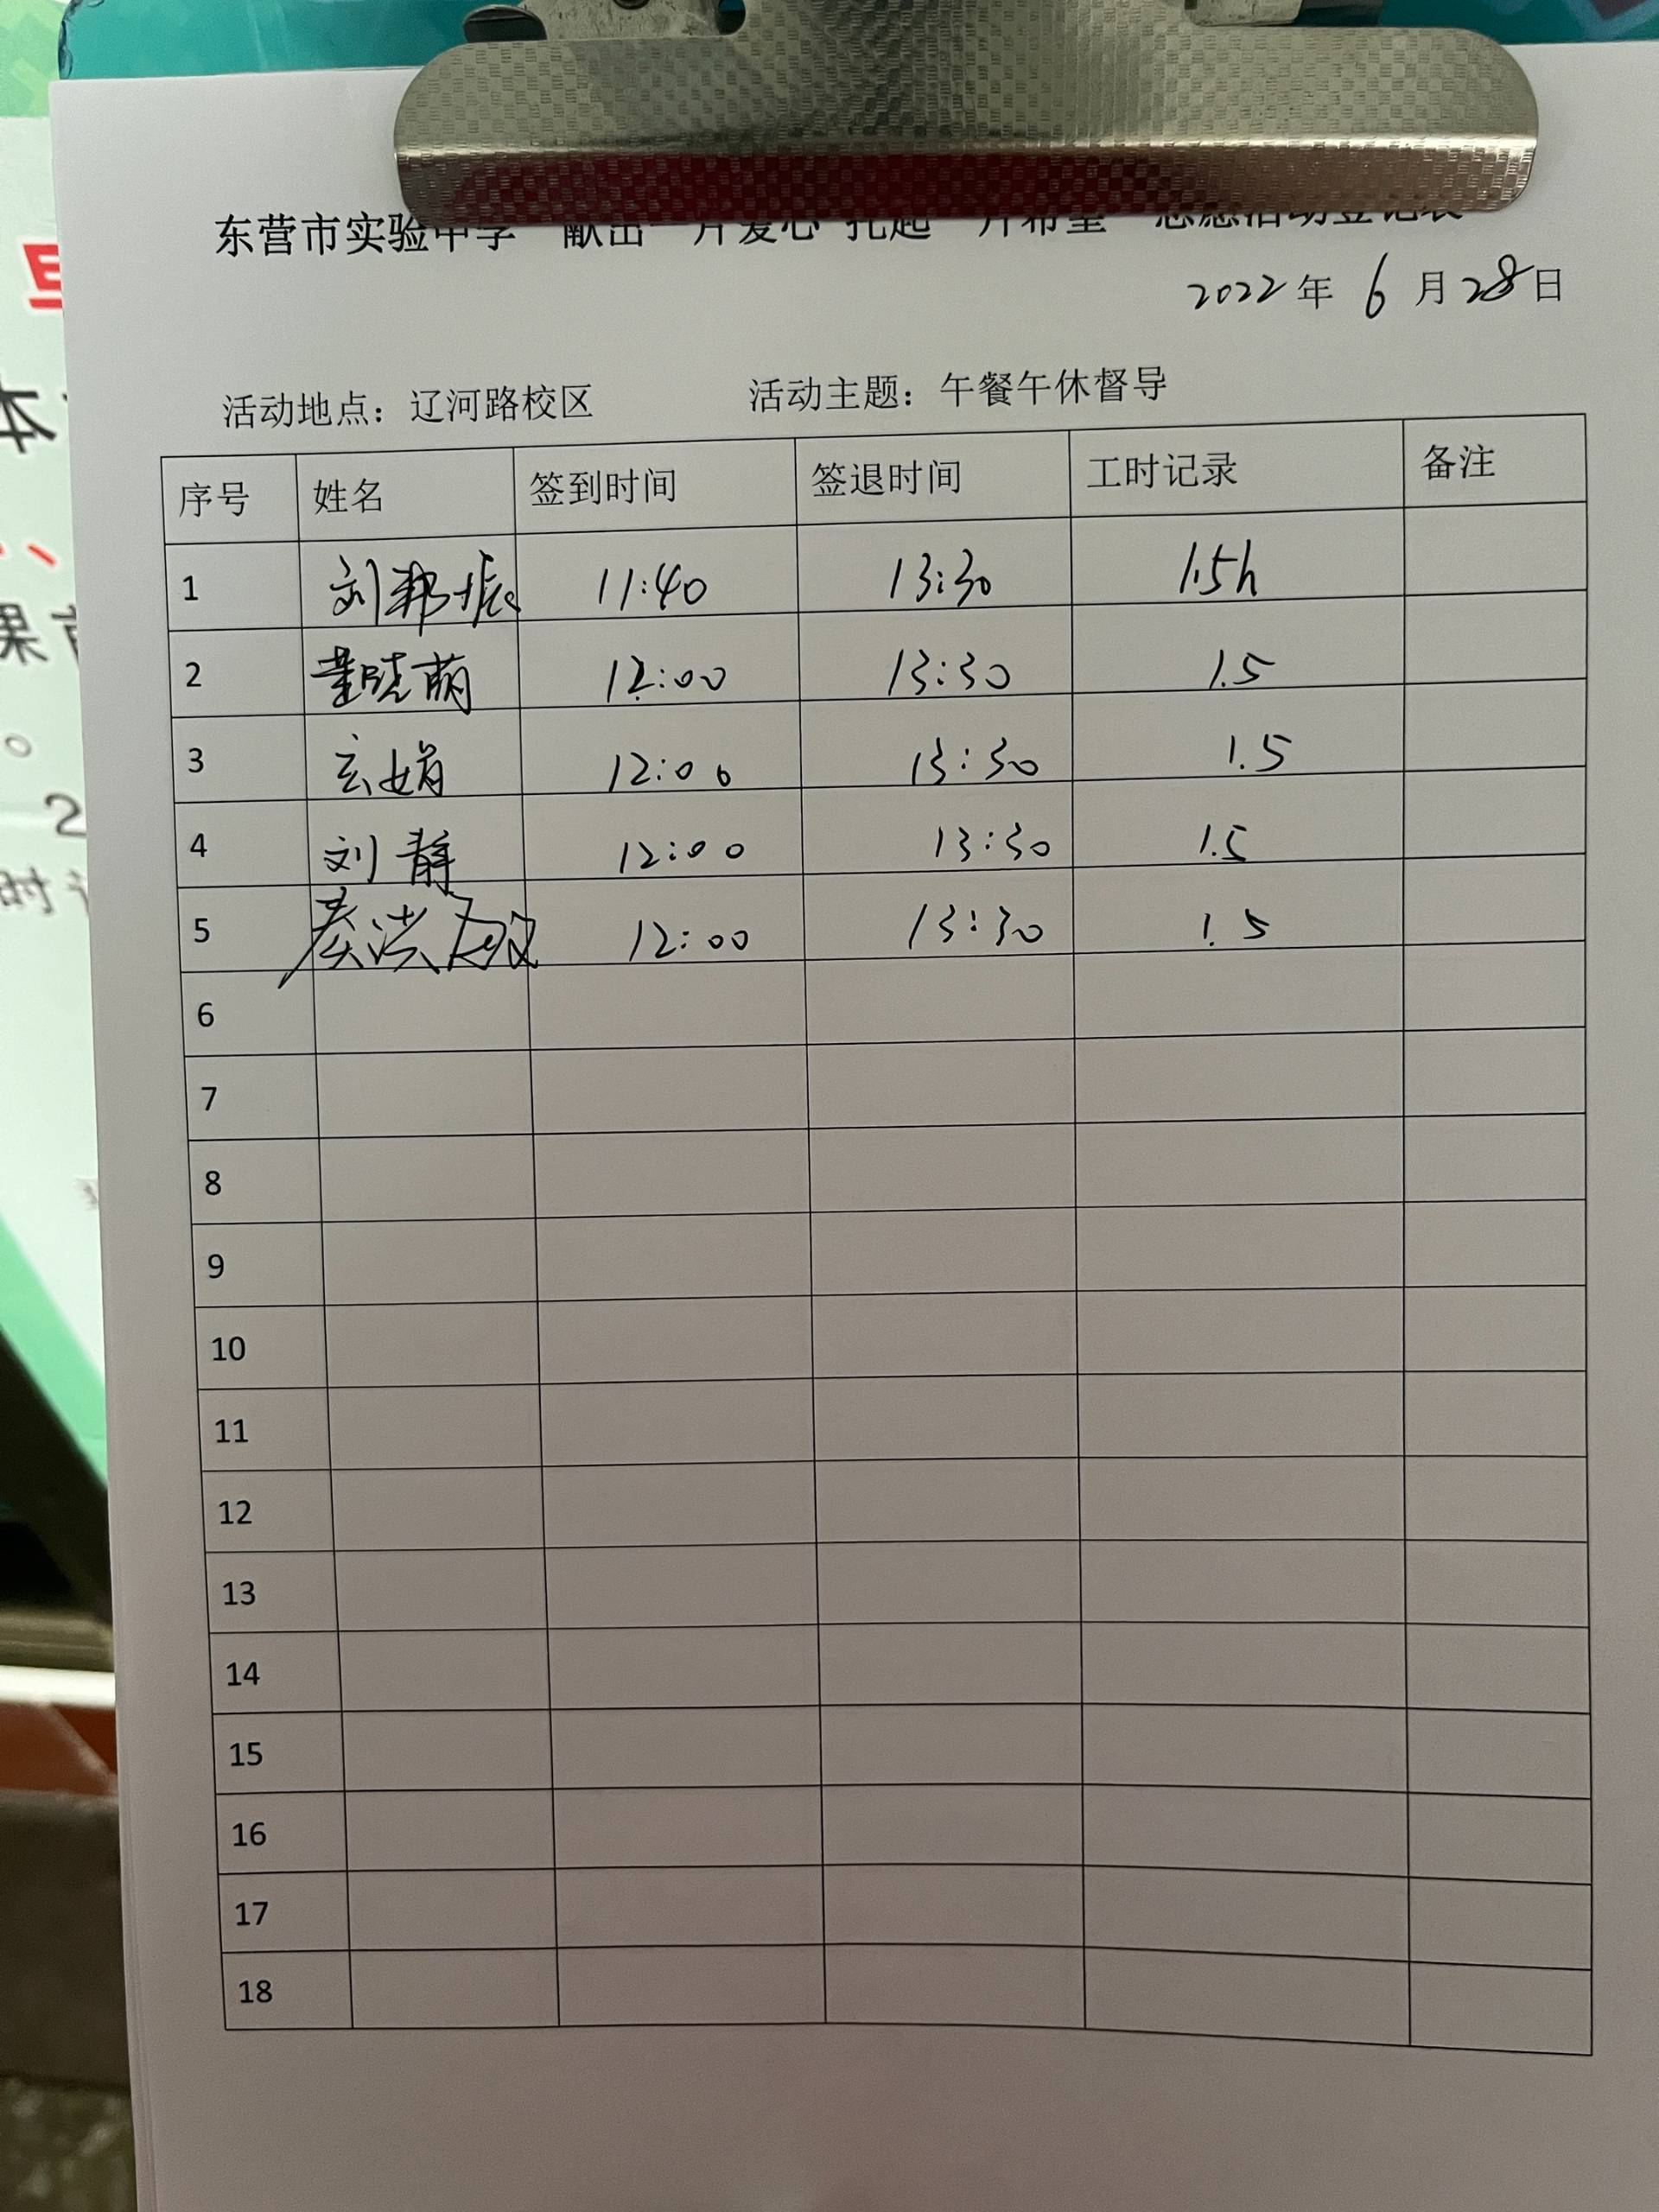 东营市实验中学 献出一片爱心 托起一片希望 志愿活动登记表
2022 年 6 月 28 日
活动地点：辽河路校区 活动主题：午餐午休督导
序号 姓名 签到时间 签退时间 工时记录 备注
1 刘邦振 11:40 13:30 1.5h
2 董晓萌 12:00 13:30 1.5
3 玄娟 12:00 13:30 1.5
4 刘静 12:00 13:30 1.5
5 秦洪 12:00 13:30 1.5
6
7
8
9
10
11
12
13
14
15
16
17
18
本
课
。
2
时